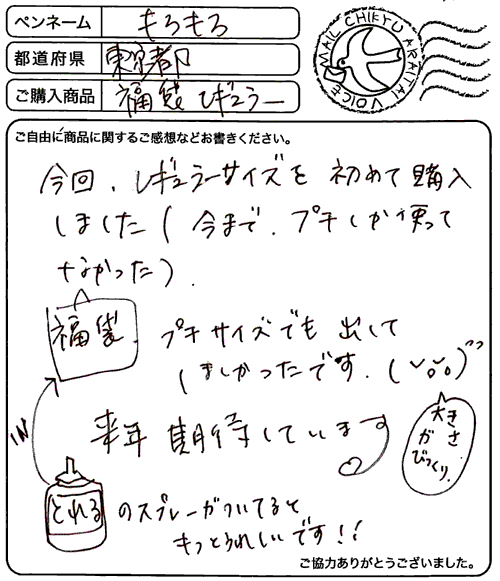 ペンネーム もろもろ
都道府県 東京都
ご購入商品 福袋 レギュラー
MAIL CHIKYU ARAITAI VOICE
ご自由に商品に関するご感想などお書きください。
今回、レギュラーサイズを初めて購入
しました(今まで、プチしか使って
なかった)。
福袋、プチサイズでも出して
ほしかったです。
大きさ
が
びっくり。
来年期待しています
IN
とれる のスプレーがついてると
きっとうれしいです!!
ご協力ありがとうございました。